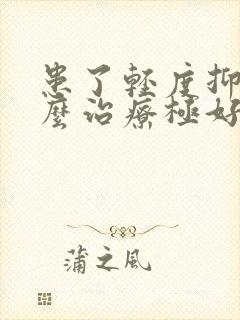 患了輕度抑
麼治療極好
蒲之風